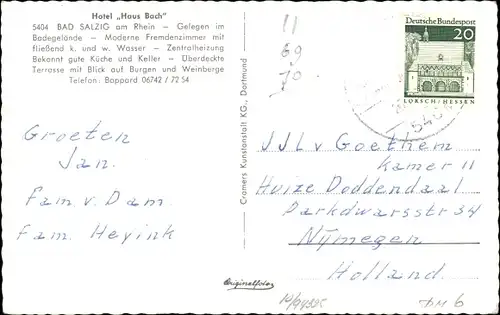 Hotel „Haus Bach“
5404 BAD SALZIG am Rhein – Gelegen im
Badegelände – Moderne Fremdenzimmer mit
fließend k. und w. Wasser – Zentralheizung
Bekannt gute Küche und Keller – Überdeckte
Terrasse mit Blick auf Burgen und Weinberge
Telefon: Boppard 06742 / 72 54
Groeten
Jan.
Fam. v. Dam.
Fam. Heyink
Cramers Kunstanstalt KG., Dortmund
Originalfoto
11
69
70
Deutsche Bundespost
20
LORSCH/HESSEN
540
J.J.L v. Goethem
Kamer 11
Huize Doddendaal
Parkdwarsstr 34
Nijmegen
Holland.
DM 6